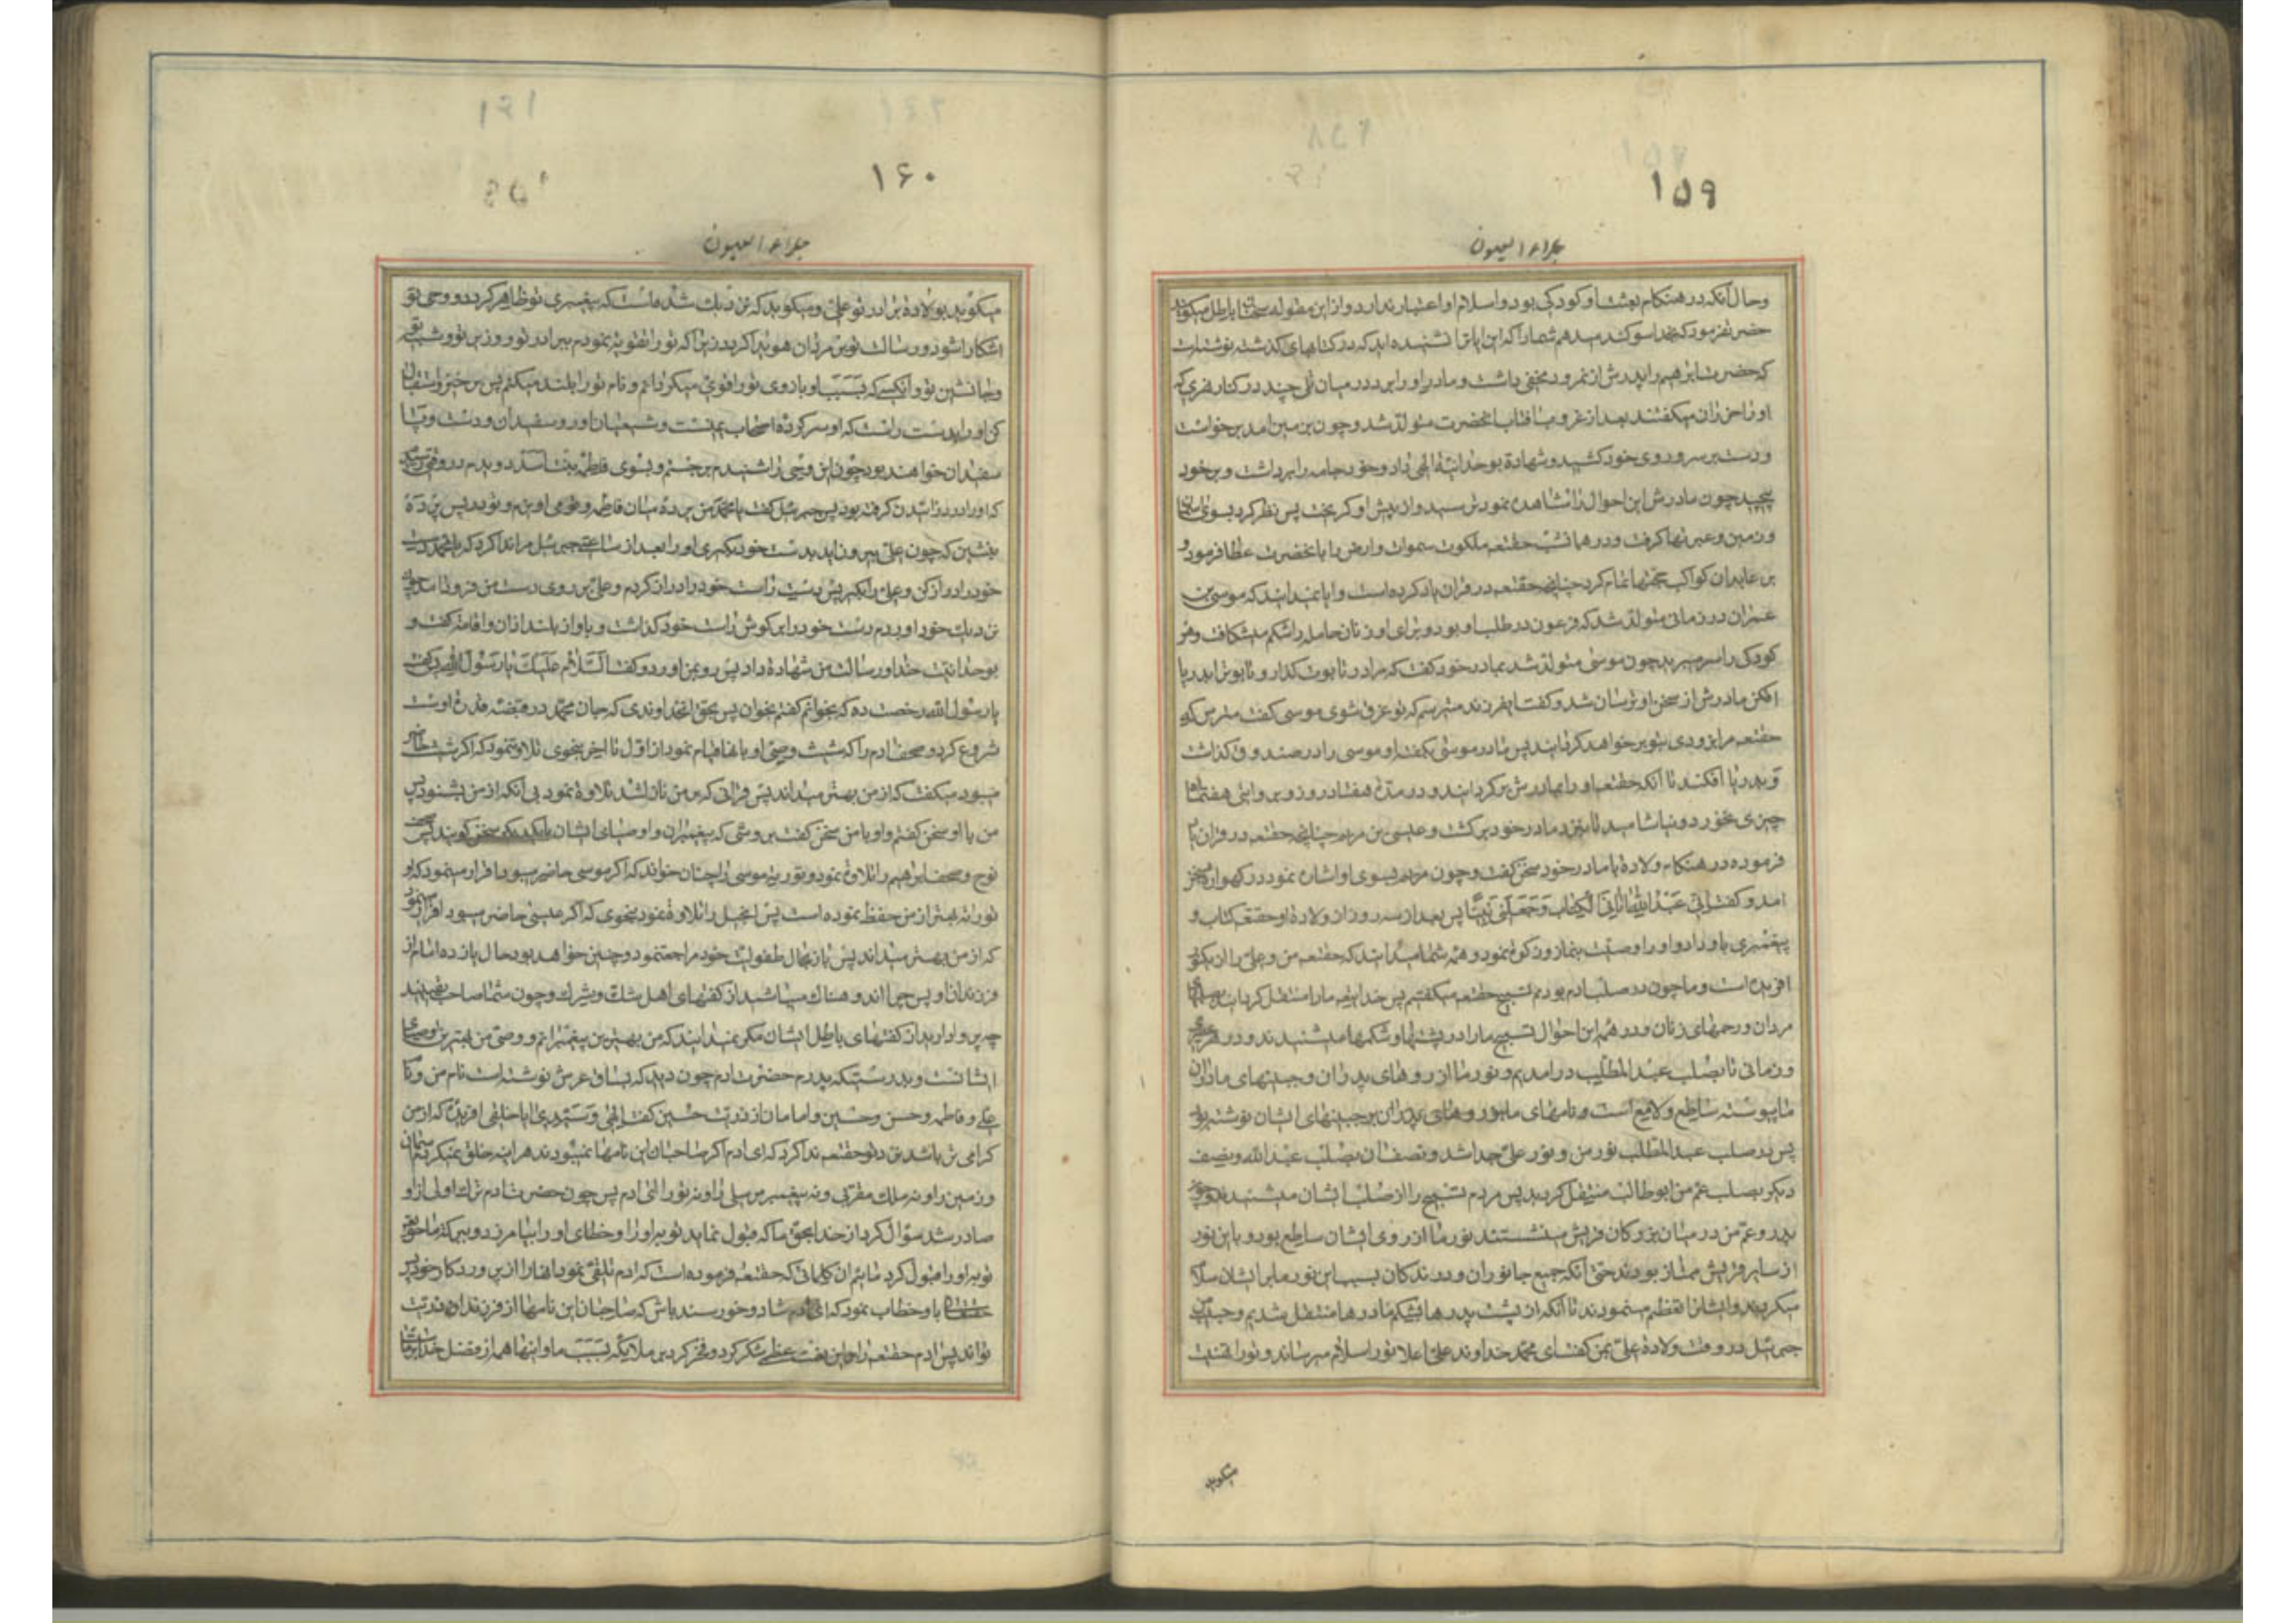 ۱۵۹
جلاء العیون
وحال آنکه در هنکام بعثت او کودکی بود و اسلام او اعتبار ندارد و از این مقوله سخنان باطل میکویند
حضرت فرمود که بخدا سوکند میدهم شما را که ایا نشنیده اید که در کتابهای کذشته نوشته است
که حضرت ابرهیم را پدرش از نمرود مخفی داشت و مادر او را برد در میان تلی چند در کنار نهری که
او را حزران میکفتند بعد از غروب افتاب انحضرت متولد شد و چون بزمین امد برخواست
و دست بر سر و روی خود کشید و شهادة بوحدانیة الهی داد و خود جامه را برداشت و بر خود
پیچید چون مادرش این احوال را مشاهده نمود ترسید و از پیش او کریخت پس نظر کرد بسوی اسمان
و زمین و عبرتها کرفت و در همانشب حقتعه ملکوت سموات و ارض را بانحضرت عطا فرمود و
بر عابدان کواکب حجتها تمام کرد چنانچه حقتعه در قران یاد کرده است و ایا نمیدانید که موسی بن
عمران در زمانی متولد شد که فرعون در طلب او بود و برای او زنان حامله را شکم میشکافت و هر
کودکی را سر میبرید چون موسی متولد شد بمادر خود کفت که مرا در تابوت کذار و تابوترا بدریا
افکن مادرش از سخن او ترسان شد و کفت ایفرزند میترسم که تو غرق شوی موسی کفت مترس که
حقتعه مرا بزودی بتو بر خواهد کردانید پس مادر موسی بکفته او موسی را در صندوق کذاشت
و بدریا افکند تا آنکه حقتعه او را بمادرش برکردانید و در مدت هفتاد روز و بروایتی هفتماه
چیزی نخورد و نیاشامید تا بنزد مادر خود برکشت و عیسی بن مریم چنانچه حقتعه در قران یاد
فرموده در هنکام ولادة با مادر خود سخن کفت و چون مریم بسوی او اشاره نمود در کهواره بسخن
امد و کفت اِنّی عَبْدُ اللهِ اٰتانِیَ الْکِتٰابَ وَجَعَلَنی نَبِیًّا پس بعد از سه روز از ولادة او حقتعه کتاب و
پیغمبری باو داد و او را وصیت بنماز و زکوة نمود و همه شما میدانید که حقتعه من و علی را از یکنور
افریده است و ما چون در صلب ادم بودیم تسبیح حقتعه میکفتیم پس خدایتعه ما را منتقل کردانید بصلبهای
مردان و رحمهای زنان و در همه این احوال تسبیح ما را در پشتها و شکمها میشنیدند و در هر عصری
و زمانی تا بصلب عبد المطلب درامدیم و نور ما از روهای پدران و جبینهای مادران
ما پیوسته ساطع و لامع است و نامهای ما بنور بر جبینهای ایشان نوشته بود
پس در صلب عبدالمطلب نور من و نور علی جدا شد و نصف ان بصلب عبدالله و نصف
دیکر بصلب عم من ابوطالب منتقل کردید پس مردم تسبیح را از صلب ایشان میشنیدند و چون
پدر و عم من در میان بزرکان قریش مینشستند نور ما از روی ایشان ساطع بود و باین نور
از سایر قریش ممتاز بودند حتی آنکه جمیع جانوران و درندکان بسبب این نور ما بر ایشان سلام
میکردند و ایشانرا تعظیم مینمودند تا آنکه از پشت پدرها بشکم مادرها منتقل شدیم و حبیب من
جبرئیل در وقت ولادة علی بمن کفت ای محمد خداوند علی اعلا تو را سلام میرساند و تو را تهنیت
میکوید
۱۶۰
جلاء العیون
میکوید بولادة برادر تو علی و میکوید که نزدیک شده است که پیغمبری تو ظاهر کردد و وحی تو
اشکارا شود و رسالت تو بر مردان هویدا کردد زیرا که تو را تقویة نمودم ببرادر تو و وزیر تو و شبیه تو
و جانشین تو و آنکسیکه بسبب او بازوی تو را قوی میکردانم و نام تو را بلند میکنم پس برخیز و استقبال
کن او را بدست راست که او سرکرده اصحاب یمین است و شیعیان او رو سفیدان و دست و پا
سفیدان خواهند بود چون این وحی را شنیدم برجستم و بسوی فاطمه بنت اسد دویدم در وقتی رسیدم
که او را درد زائیدن کرفته بود پس جبرئیل کفت یا محمد من پرده میان فاطمه و تو می اویزم و تو در پس پرده
بنشین که چون علی بیرون اید بدست خود بکیری او را بعد از ساعتی جبرئیل مرا ندا کرد که یا محمد دست
خود را دراز کن و علی را بکیر پس دست راست خود را دراز کردم و علی بر روی دست من فرود امد چون
نزدیک خود اوردم دست خود را بر کوش راست خود کذاشت و باواز بلند اذان و اقامه کفت و
بوحدانیت خدا و رسالت من شهادة داد پس رو بمن اورد و کفت اَلسَّلامُ عَلَیْکَ یا رَسُولَ اللهِ پس کفت
یا رسول الله رخصت ده که بخوانم کفتم بخوان پس بحق انخداوندی که جان محمد در قبضه قدرت اوست
شروع کرد و صحف ادم را که شیث وصی او بانها قیام نمود از اول تا اخر بنحوی تلاوة نمود که اکر شیث حاضر
میبود میکفت که از من بهتر میداند پس قرانی که بر من نازل شد تلاوة نمود بی آنکه از من بشنود پس
من با او سخن کفتم و او با من سخن کفت بروشی که پیغمبران و اوصیای ایشان با یکدیکر سخن کویند پس صحف
نوح و صحف ابرهیم را تلاوة نمود و توریة موسی را چنان خواند که اکر موسی حاضر میبود اقرار مینمود که او
توریة بهتر از من حفظ نموده است پس انجیل را تلاوة نمود بنحوی که اکر عیسی حاضر میبود اقرار مینمود
که از من بهتر میداند پس باز بحال طفولیت خود مراجعت نمود و چنین خواهد بود حال یازده امام از
فرزندان او پس چرا اندوهناک میباشید از کفتهای اهل شک و شرک و چون شما صاحب یقینید
چه پروا دارید از کفتهای باطل ایشان مکر نمیدانید که من بهترین پیغمبرانم و وصی من بهترین اوصیای
ایشانست و بدرستیکه پدرم حضرت ادم چون دید که بساق عرش نوشته است نام من و نام
علی و فاطمه و حسن و حسین و امامان از ذریت حسین کفت الهی وَسَیِّدی ایا خلقی افریدۀ که از من
کرامی تر باشد نزد تو حقتعه ندا کرد که ای ادم اکر صاحبان این نامها نمیبودند هر اینه خلق نمیکردم اسمان
و زمین را و نه ملک مقربی و نه پیغمبر مرسلی را و نه تو را ای ادم پس چون حضرت ادم ترک اولی از او
صادر شد سؤال کرد از خدا بحق ما که قبول نماید توبه او را و خطای او را بیامرزد و ببرکة ما حقتعه
توبه او را قبول کرد ما بودیم ان کلماتی که حقتعه فرموده است که ادم تلقی نمود انها را از پروردکار خود پس
حقتعه باو خطاب نمود که ای ادم شاد و خورسند باش که صاحبان این نامها از فرزندان و ذریت
تواند پس ادم حقتعه را بر این نعمت عظمی شکر کرد و فخر کرد بر ملایکه بسبب ما و اینها همه از فضل خداست بر ما